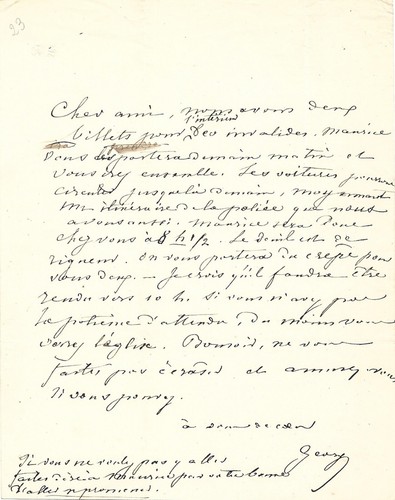 23
Cher ami, nous avons deux
l'intérieur
billets pour des invalides. Maurice
vous les portera demain matin et
vous irez ensemble. Les voitures pourront
circuler jusque là demain, moyennant
un itinéraire de la police que nous
avons aussi. Maurice sera donc
chez vous à 8 h 1/2. Le deuil est de
rigueur. On vous portera du crêpe pour
vous deux. — Je crois qu'il faudra être
rendu vers 10 h. Si vous n'avez pas
la patience d'attendre, du moins vous
verrez l'église. Bonsoir, ne vous
faites pas écraser et amusez vous
si vous pouvez.
à vous de cœur
George
Si vous ne voulez pas y aller
faites dire à Maurice par votre bonne
d'aller